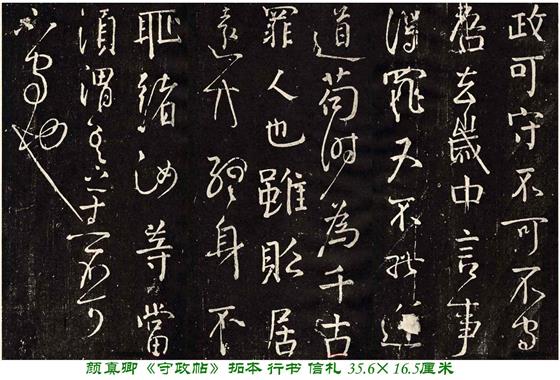 政可守不可不守
吾去歲中言事
得罪又不能逆
道苟時為千古
罪人也雖貶居
遠方終身不
耻緒汝等當
須謂吾之志不可
不守也
颜真卿《守政帖》 拓本 行书 信札 35.6×16.5厘米